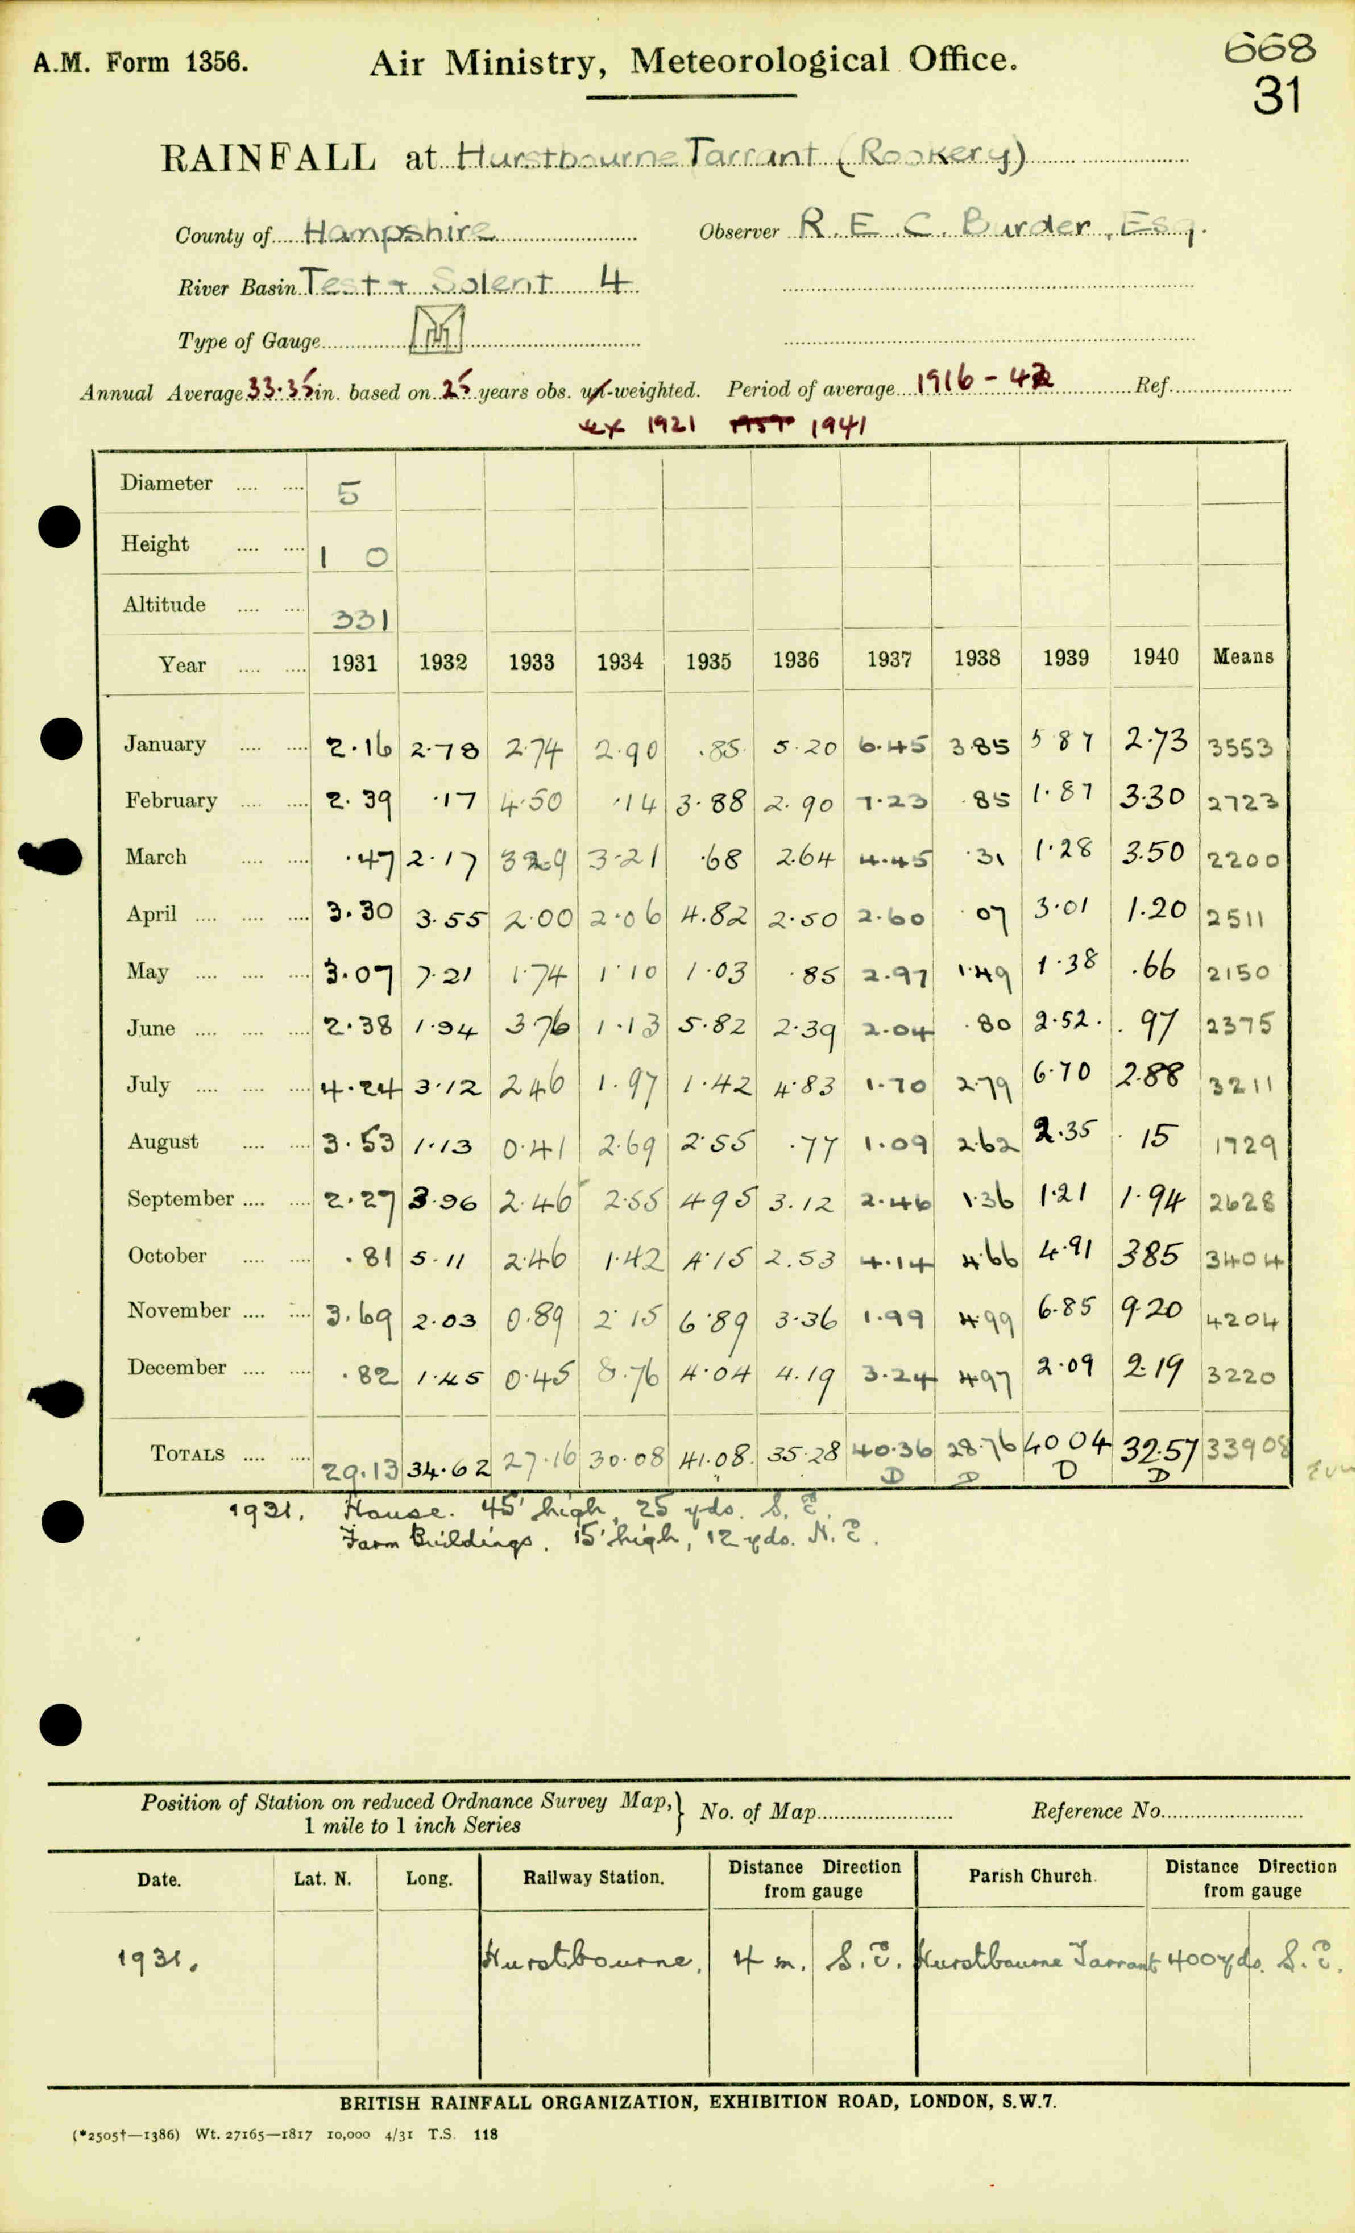 A.M. Form 1356. Air Ministry, Meteorological Office. 668
31
RAINFALL at Hurstbourne Tarrant (Rookery)
County of Hampshire Observer R. E. C. Burder, Esq.
River Basin Test + Solent 4
Type of Gauge M
Annual Average 33.35 in. based on 25 years obs. un-weighted. Period of average 1916 - 42 Ref.
ex 1921 1941
Diameter 5
Height 1 0
Altitude 331
Year 1931 1932 1933 1934 1935 1936 1937 1938 1939 1940 Means
January 2.16 2.78 2.74 2.90 .85 5.20 6.45 3.85 5.87 2.73 3553
February 2.39 .17 4.50 .14 3.88 2.90 7.23 .85 1.87 3.30 2723
March .47 2.17 3.29 3.21 .68 2.64 4.45 .31 1.28 3.50 2200
April 3.30 3.55 2.00 2.06 4.82 2.50 2.60 .07 3.01 1.20 2511
May 3.07 7.21 1.74 1.10 1.03 .85 2.97 1.49 1.38 .66 2150
June 2.38 1.94 3.76 1.13 5.82 2.39 2.04 .80 2.52 .97 2375
July 4.24 3.12 2.46 1.97 1.42 4.83 1.70 2.79 6.70 2.88 3211
August 3.53 1.13 0.41 2.69 2.55 .77 1.09 2.62 2.35 .15 1729
September 2.27 3.96 2.46 2.55 4.95 3.12 2.46 1.36 1.21 1.94 2628
October .81 5.11 2.46 1.42 4.15 2.53 4.14 4.66 4.91 3.85 3404
November 3.69 2.03 0.89 2.15 6.89 3.36 1.99 4.99 6.85 9.20 4204
December .82 1.45 0.45 8.76 4.04 4.19 3.24 4.97 2.09 2.19 3220
TOTALS 29.13 34.62 27.16 30.08 41.08 35.28 40.36 28.76 40.04 32.57 33908
D D D D
1931. House. 45' high, 25 yds. S. E.
Farm Buildings. 15' high, 12 yds. N. E.
Position of Station on reduced Ordnance Survey Map, No. of Map Reference No.
1 mile to 1 inch Series
Date. Lat. N. Long. Railway Station. Distance Direction from gauge Parish Church. Distance Direction from gauge
1931. Hurstbourne. 4 m. S. E. Hurstbourne Tarrant 400 yds. S. E.
BRITISH RAINFALL ORGANIZATION, EXHIBITION ROAD, LONDON, S.W.7.
(*2505†—1386) Wt. 27165—1817 10,000 4/31 T.S. 118